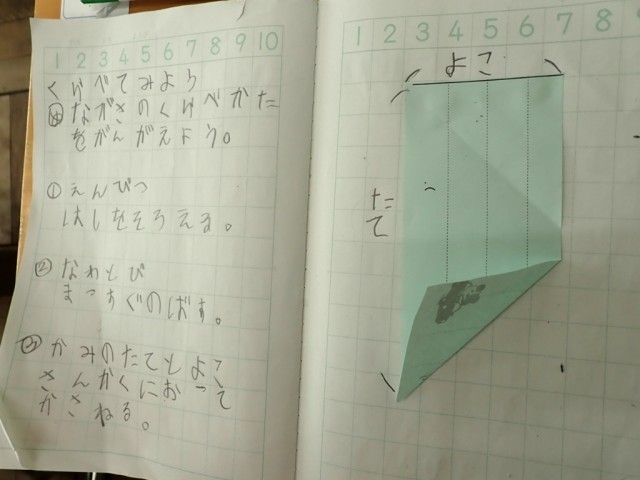 1 2 3 4 5 6 7 8 9 10
くらべてみよう
め ながさのくらべかた
をかんがえよう。
① えんぴつ
はしをそろえる。
② なわとび
まっすぐのばす。
③ かみのたてとよこ
さんかくにおって
かさねる。
1 2 3 4 5 6 7 8
よこ
たて